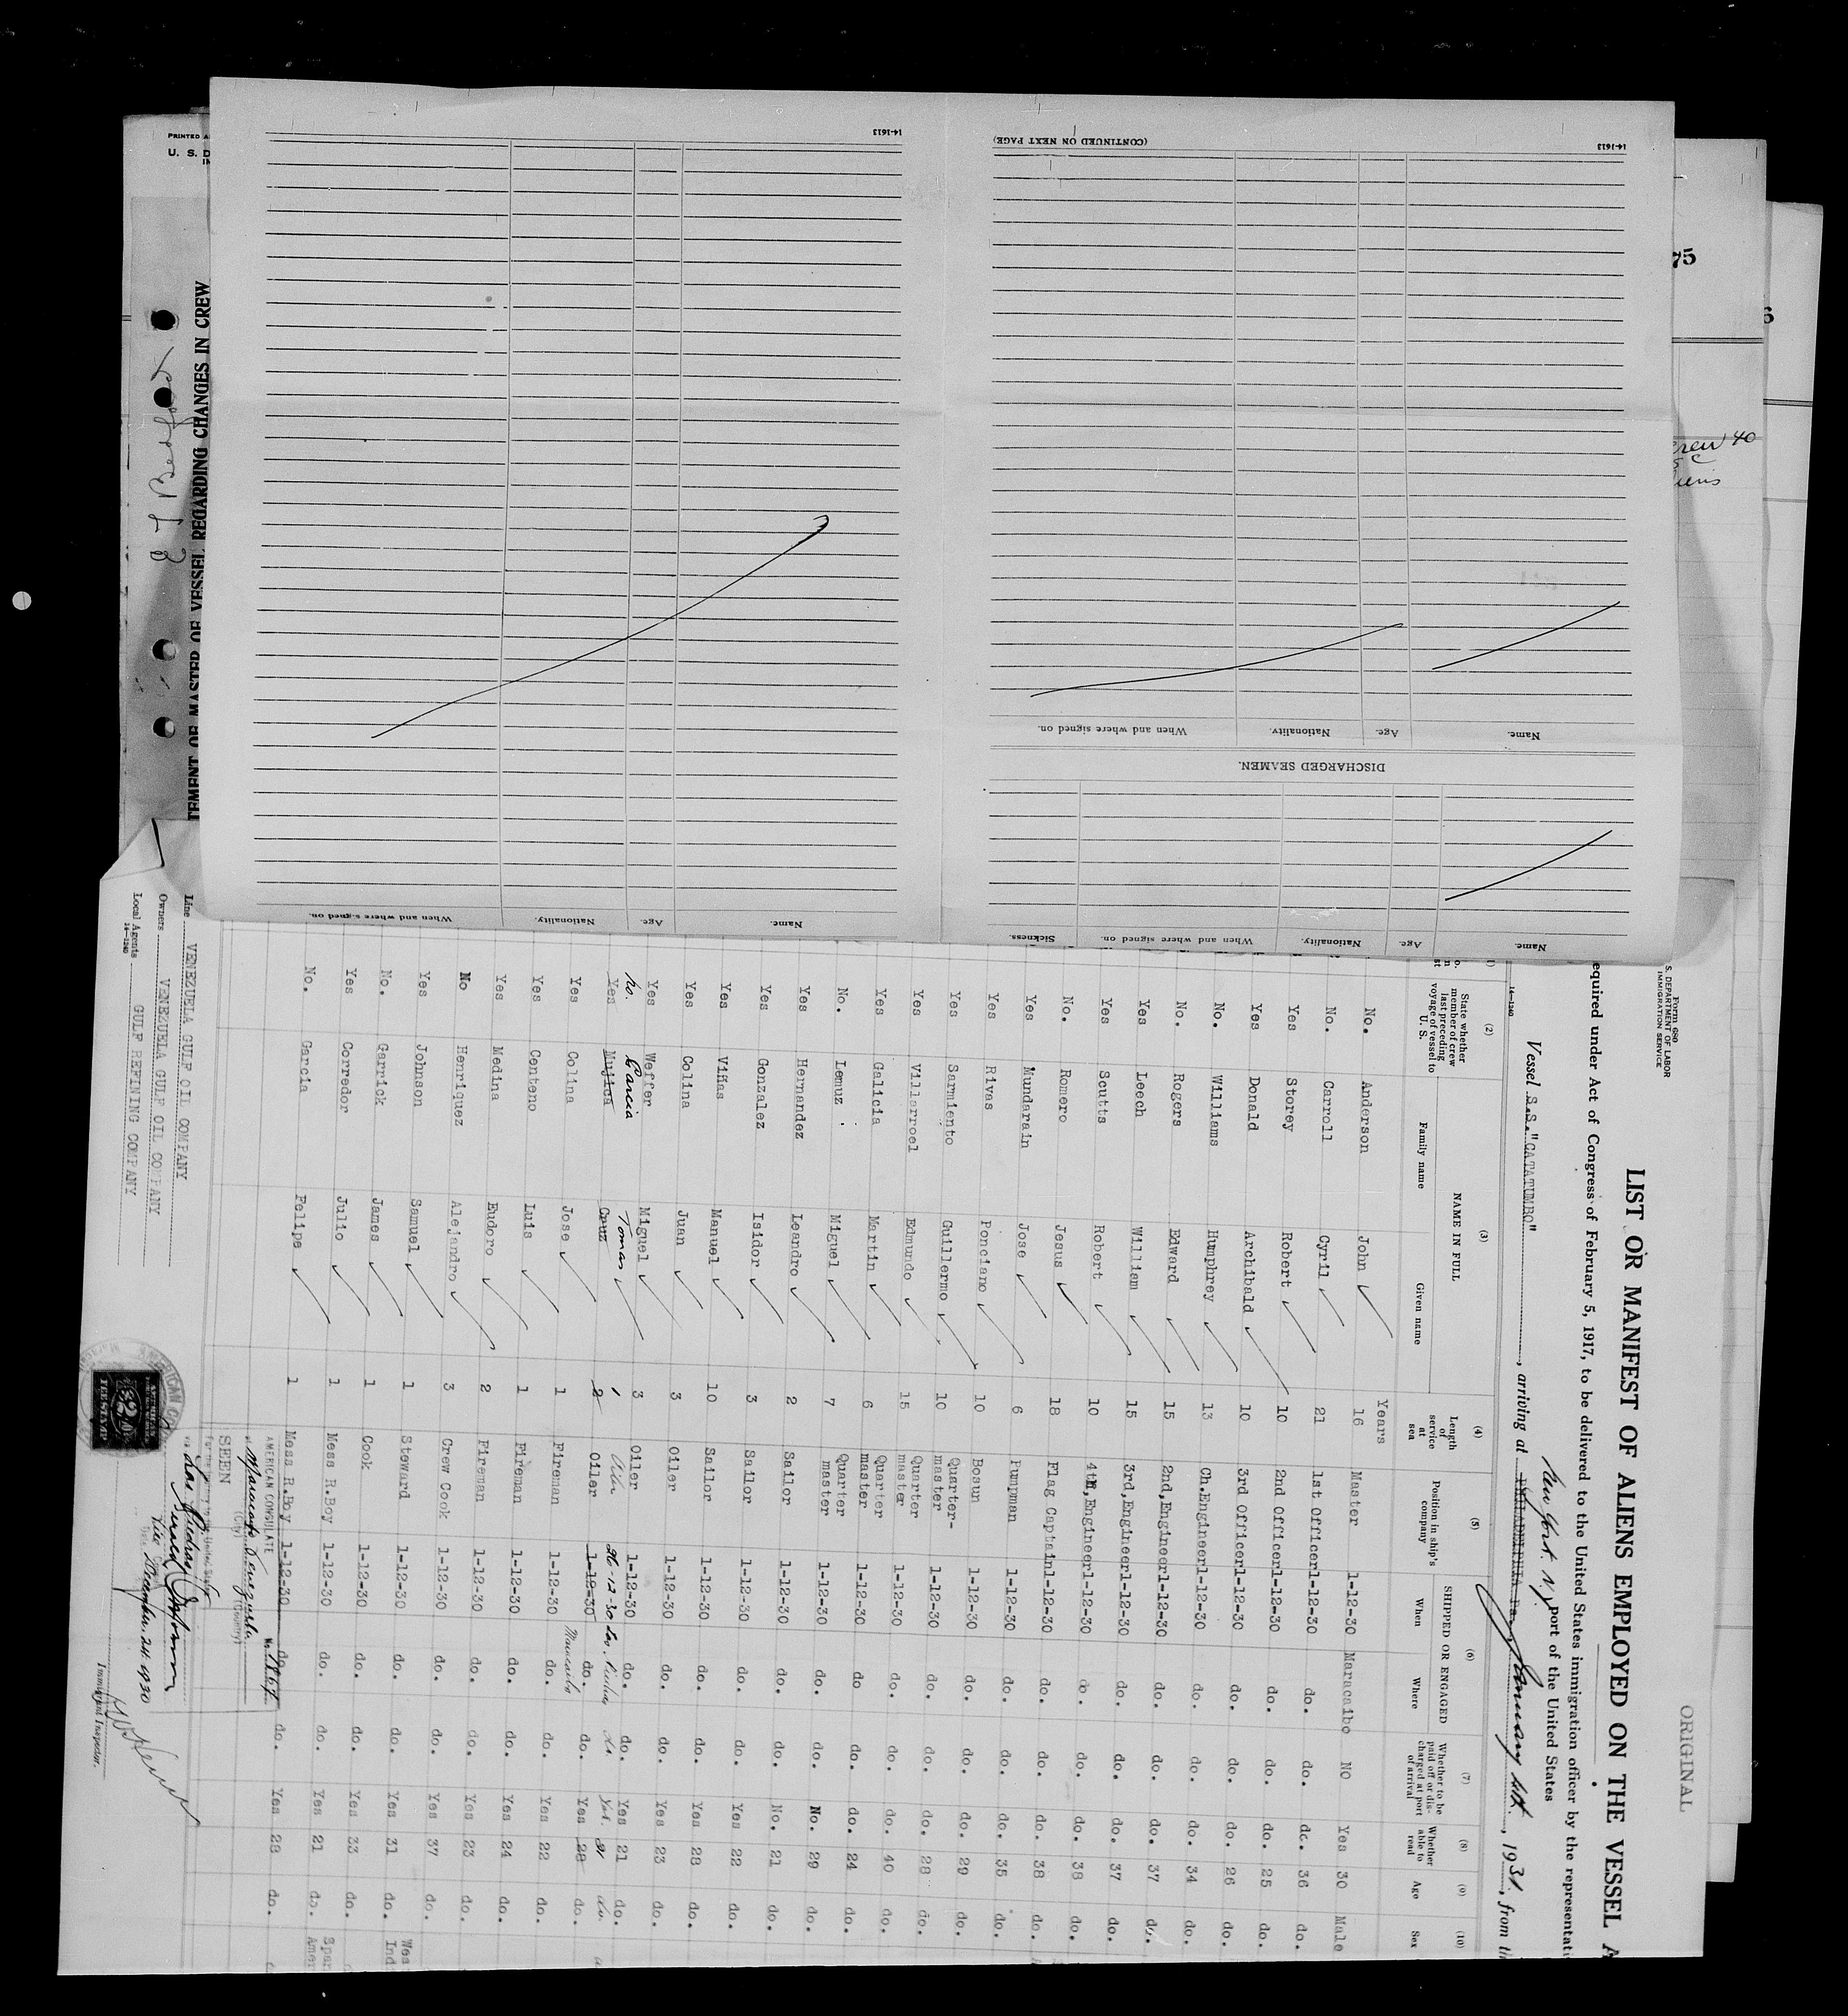 ORIGINAL
Form 689
S. DEPARTMENT OF LABOR
IMMIGRATION SERVICE
LIST OR MANIFEST OF ALIENS EMPLOYED ON THE VESSEL A
equired under Act of Congress of February 5, 1917, to be delivered to the United States immigration officer by the representati
Vessel S.S."CATATUMBO", arriving at New York. N.Y. port of the United States January 4th, 1931, from th
14-1240
(2) (3) (4) (5) (6) (7) (8) (9) (10)
State whether member of crew last preceding voyage of vessel to U. S. NAME IN FULL Length of service at sea Position in ship's company SHIPPED OR ENGAGED Whether to be paid off or discharged at port of arrival Whether able to read Age Sex
Family name Given name When Where
Years
No. Anderson John 16 Master 1-12-30 Maracaibo NO Yes 30 Male
No. Carroll Cyril 21 1st Officer 1-12-30 do. do. do. 36 do.
Yes Storey Robert 10 2nd Officer 1-12-30 do. do. do. 25 do.
Yes Donald Archibald 10 3rd Officer 1-12-30 do. do. do. 26 do.
No. Williams Humphrey 13 Ch.Engineer 1-12-30 do. do. do. 34 do.
No. Rogers Edward 15 2nd,Engineer 1-12-30 do. do. do. 37 do.
Yes Leech William 15 3rd,Engineer 1-12-30 do. do. do. 37 do.
Yes Scutts Robert 10 4th,Engineer 1-12-30 do. do. do. 38 do.
No. Romero Jesus 18 Flag Captain 1-12-30 do. do. do. 38 do.
Yes Mundarain Jose 6 Pumpman 1-12-30 do. do. do. 35 do.
Yes Rivas Ponciano 10 Bosun 1-12-30 do. do. do. 29 do.
Yes Sarmiento Guillermo 10 Quarter-master 1-12-30 do. do. do. 28 do.
Yes Villarroel Edmundo 15 Quarter master 1-12-30 do. do. do. 40 do.
Yes Galicia Martin 6 Quarter master 1-12-30 do do. do. 24 do.
No. Lemuz Miguel 7 Quarter master 1-12-30 do. do. No. 29 do.
Yes Hernandez Leandro 2 Sailor 1-12-30 do. do. No. 21 do.
Yes Gonzalez Isidor 3 Sailor 1-12-30 do. do. Yes 22 do.
Yes Viñas Manuel 10 Sailor 1-12-30 do. do. Yes 28 do.
Yes Colina Juan 3 Oiler 1-12-30 do. do. Yes 23 do.
Yes Weffer Miguel 3 Oiler 1-12-30 do. do. Yes 21 do.
No. Garcia Tomas 1 Oiler 26-12-30 Las Piedras do. Yes. 21 do.
Yes Mujica Cruz 2 Oiler 1-12-30 do. do. Yes 28 do.
Yes Colina Jose 1 Fireman 1-12-30 Maracaibo do. do. Yes 22 do.
Yes Centeno Luis 1 Fireman 1-12-30 do. do. Yes 24 do.
Yes Medina Eudoro 2 Fireman 1-12-30 do. do. Yes 23 do.
No Henriquez Alejandro 3 Crew Cook 1-12-30 do. do. Yes 37 do.
Yes Johnson Samuel 1 Steward 1-12-30 do. do. Yes 31 do. Wes Ind
No. Garrick James 1 Cook 1-12-30 do. do. Yes 33 do.
Yes Corredor Julio 1 Mess R.Boy 1-12-30 do. do. Yes 21 do. Span Amer
No. Garcia Felipe 1 Mess R.Boy 1-12-30 do. do. Yes 28 do.
AMERICAN CONSULATE
at Maracaibo Venezuela
(City) (Country)
SEEN
For the journey to the United States
via Las Piedras
Vice Consul
Date December. 24. 1930
AMERICAN
FEE STAMP
Immigrant Inspector.
Line VENEZUELA GULF OIL COMPANY
Owners VENEZUELA GULF OIL COMPANY
Local Agents GULF REFINING COMPANY
14-1240
PRINTED A
U. S. D
IN
TEMENT OF MASTER OF VESSEL REGARDING CHANGES IN CREW
Name. Age. Nationality. When and where signed on. Sickness.
DISCHARGED SEAMEN.
Name. Age. Nationality. When and where signed on.
(CONTINUED ON NEXT PAGE)
14-1613
Name. Age. Nationality. When and where signed on.
14-1613
75
crew 40